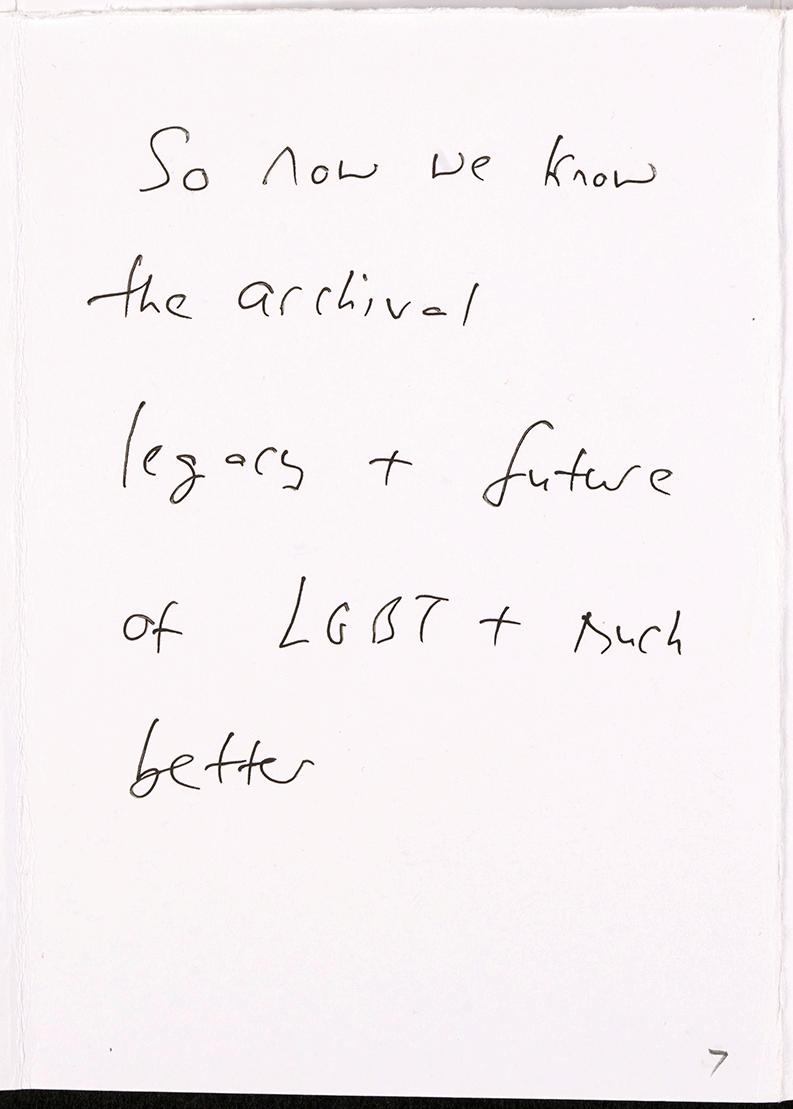 So now we know
the archival
legacy + future
of LGBT + much
better
7